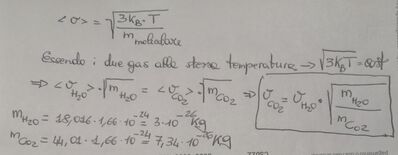 <v> = √(3K_B·T / m_molecolare)
Essendo i due gas alla stessa temperatura → √(3K_B T) =
⇒ <v_H2O>·√m_H2O = <v_CO2>·√m_CO2 ⇒ v_CO2 = v_H2O · √(m_H2O / m_CO2)
m_H2O = 18,016·1,66·10^-24 = 3·10^-26 Kg
m_CO2 = 44,01·1,66·10^-24 = 7,34·10^-26 Kg